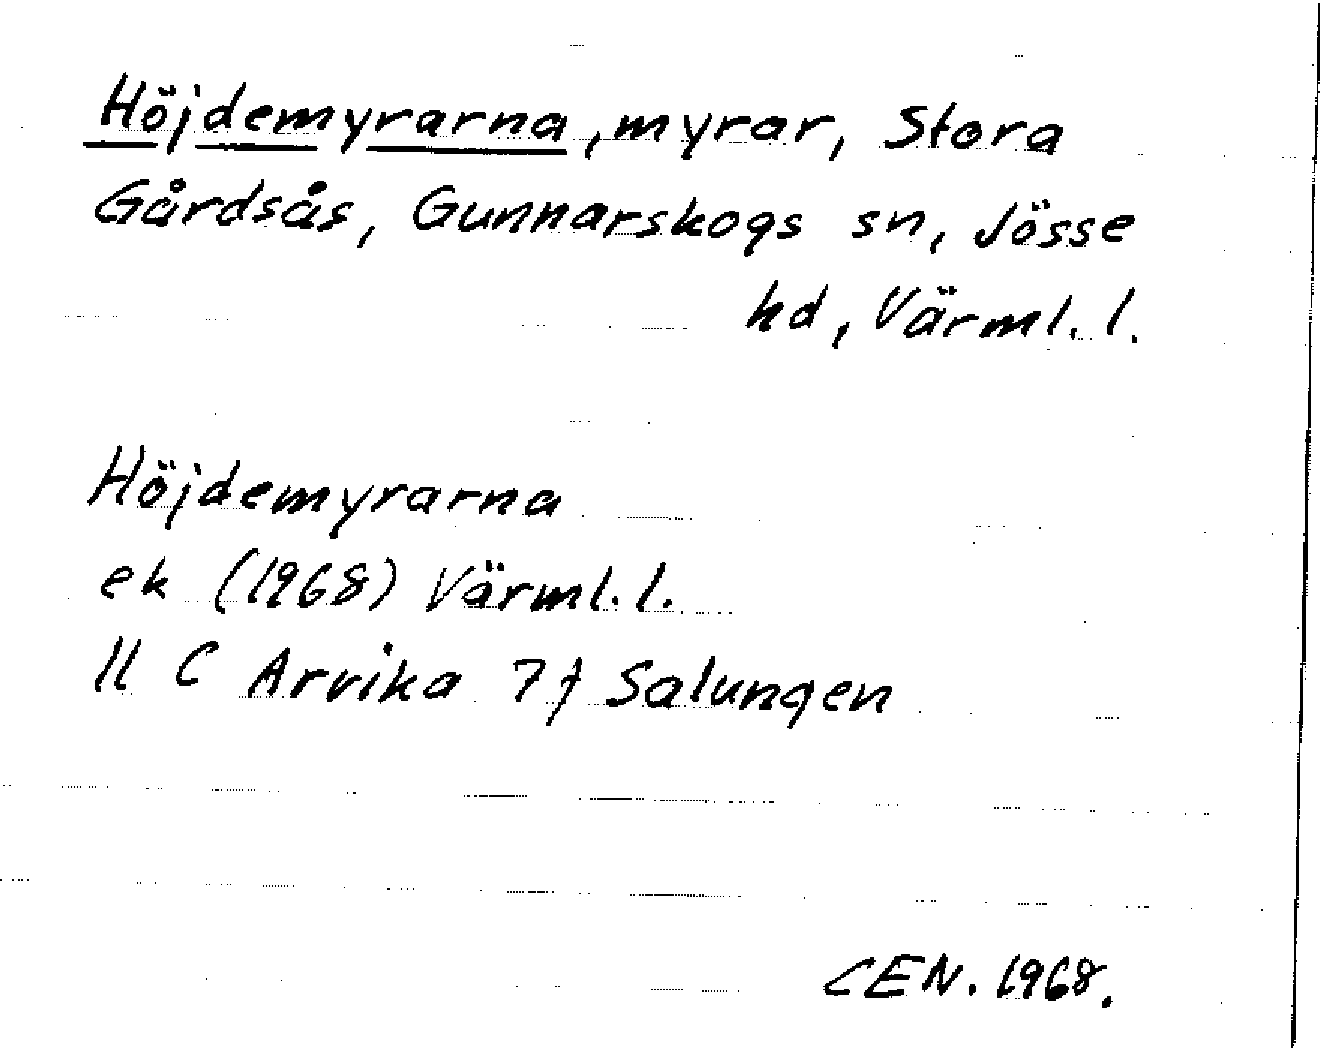 Höjdemyrarna, myrar, Stora
Gårdsås, Gunnarskogs sn, Jösse
hd, Värml. l.
Höjdemyrarna
ek (1968) Värml. l.
11 C Arvika 7f Salungen
CEN. 1968.